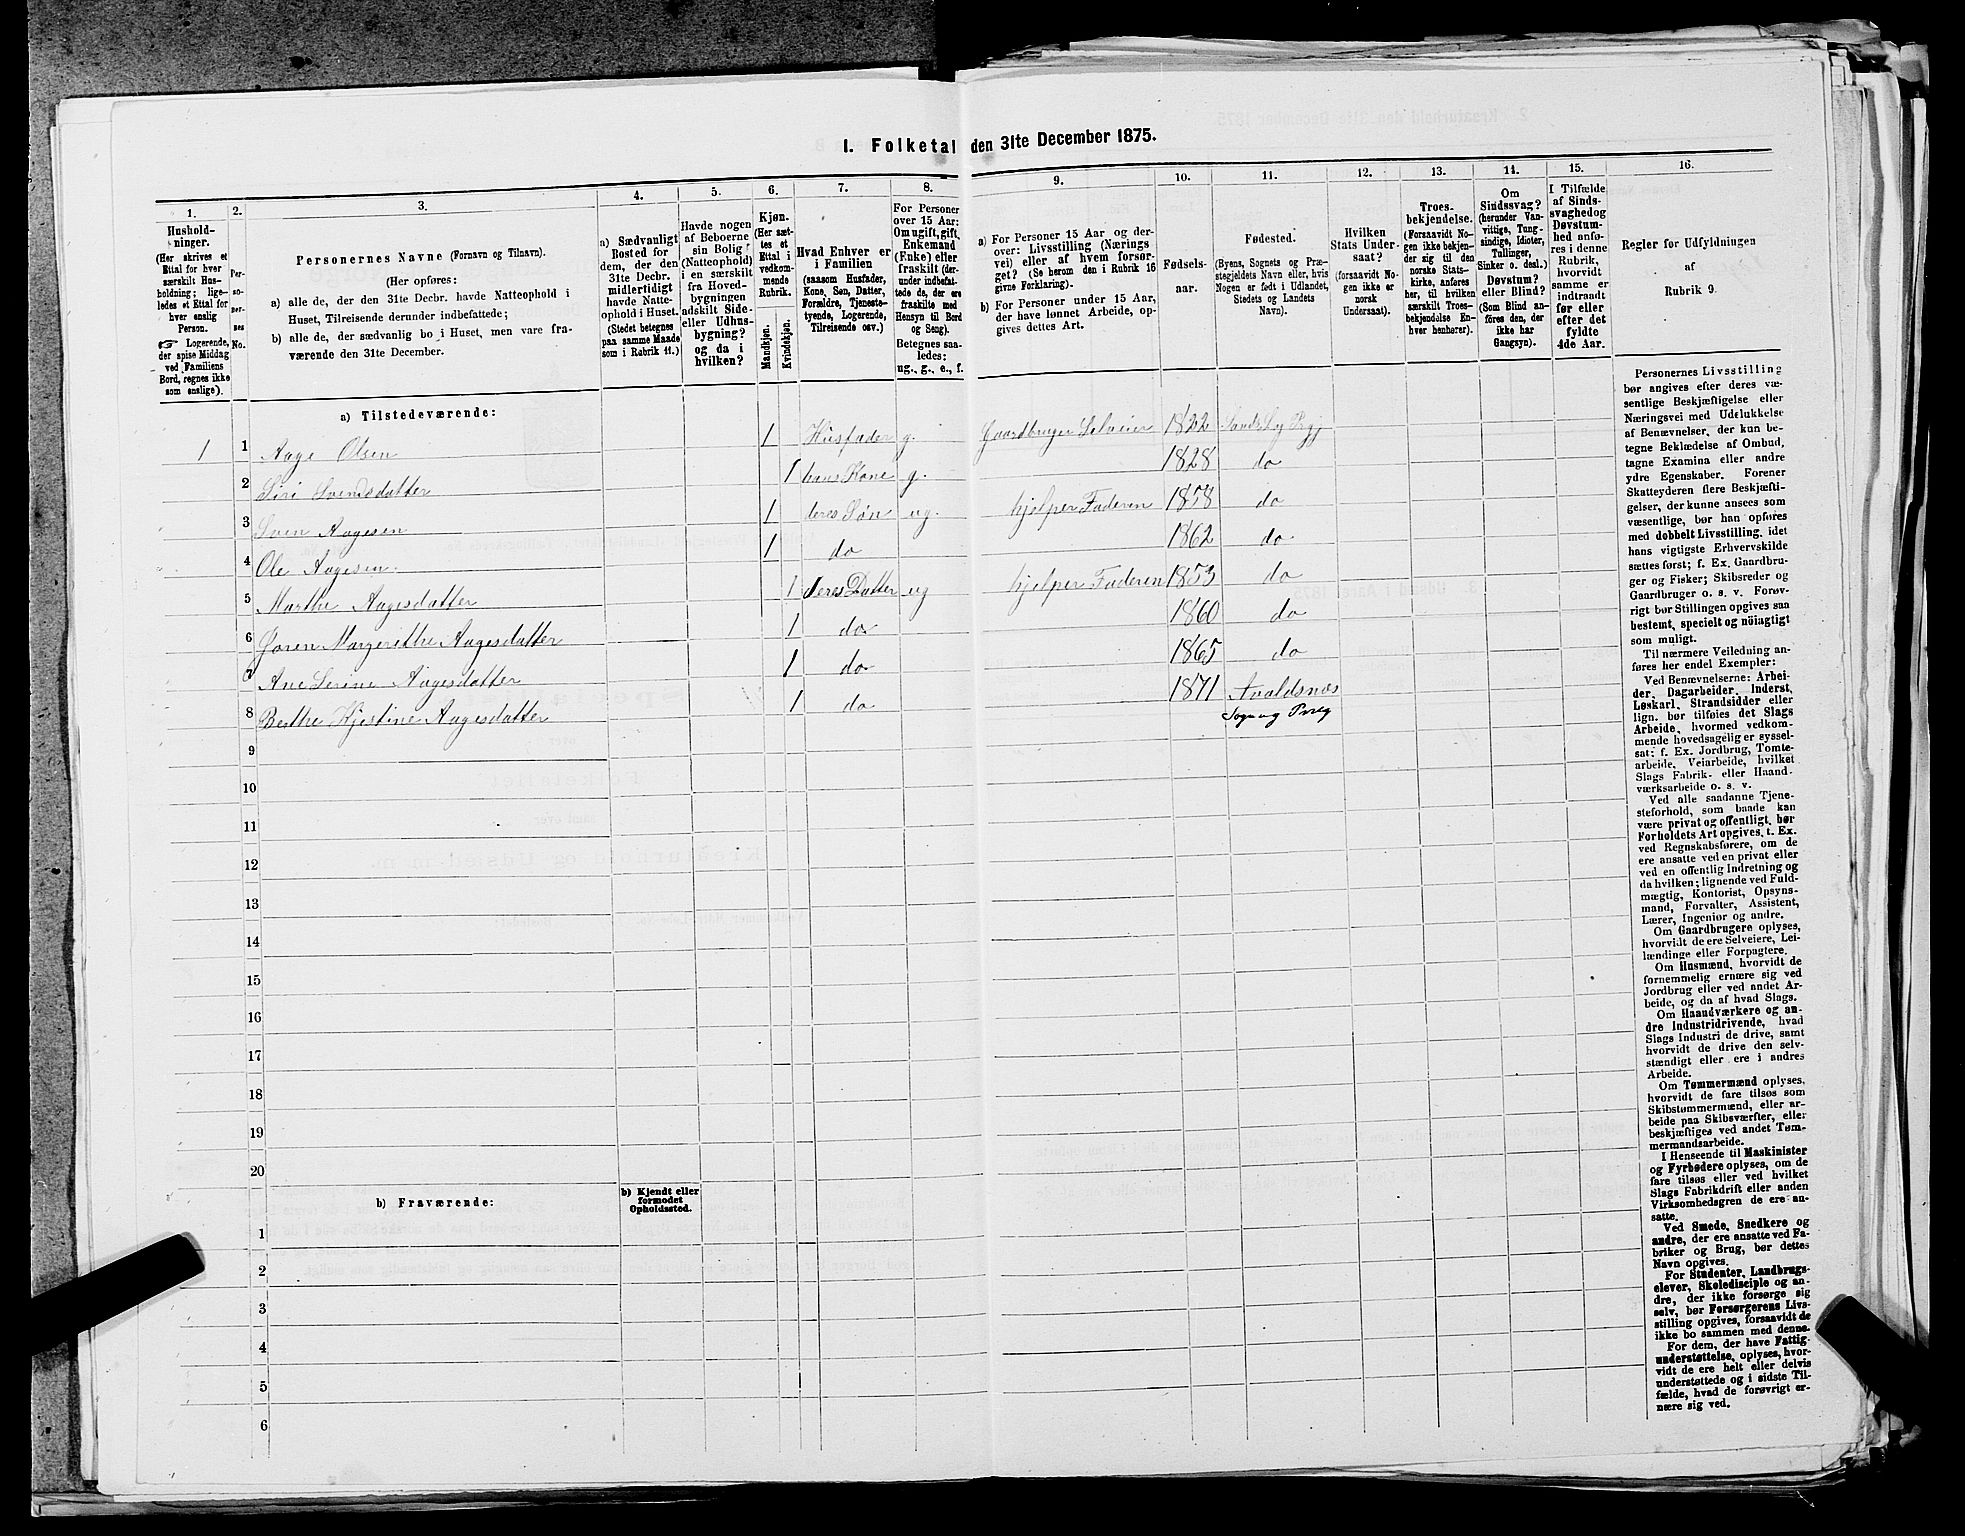 I. Folketal den 31te December 1875.
1.
Hushold-
ninger.
(Her skrives et
Ettal for hver
særskilt Hus-
holdning; lige-
ledes et Ettal for
hver enslig
Person.
☞ Logerende,
der spise Middag
ved Familiens
Bord, regnes ikke
som enslige).
2.
Per-
so-
ner-
nes
No.
3.
Personernes Navne (Fornavn og Tilnavn).
(Her opføres:
a) alle de, der den 31te Decbr. havde Natteophold i
Huset, Tilreisende derunder indbefattede;
b) alle de, der sædvanlig bo i Huset, men vare fra-
værende den 31te December.
4.
a) Sædvanligt
Bosted for
dem, der den
31te Decbr.
midlertidigt
havde Natte-
ophold i Huset.
(Stedet betegnes
paa samme Maade
som i Rubrik 11.)
5.
Havde nogen
af Beboerne
sin Bolig
(Natteophold)
i en særskilt
fra Hoved-
bygningen
adskilt Side-
eller Udhus-
bygning?
og da i
hvilken?
6.
Kjøn.
(Her sæt-
tes et
Ettal i
vedkom-
mende
Rubrik.
Mandkjøn.
Kvindekjøn.
7.
Hvad Enhver er
i Familien
(saasom Husfader,
Kone, Søn, Datter,
Forældre, Tjeneste-
tyende, Logerende,
Tilreisende osv.)
8.
For Personer
over 15 Aar:
Om ugift, gift,
Enkemand
(Enke) eller
fraskilt (der-
under indbefat-
tede de, der ere
fraskilte med
Hensyn til Bord
og Seng).
Betegnes saa-
ledes:
ug., g., e., f.
9.
a) For Personer 15 Aar og der-
over: Livsstilling (Nærings
vei) eller af hvem forsør-
get? (Se herom den i Rubrik 16
givne Forklaring).
b) For Personer under 15 Aar,
der have lønnet Arbeide, op-
gives dettes Art.
10.
Fødsels-
aar.
11.
Fødested.
(Byens, Sognets og Præ-
stegjeldets Navn eller, hvis
Nogen er født i Udlandet,
Stedets og Landets
Navn).
12.
Hvilken
Stats Under-
saat?
(forsaavidt No-
gen ikke er
norsk
Undersaat).
13.
Troes-
bekjendelse.
(Forsaavidt No-
gen ikke bekjen-
der sig til den
norske Stats-
kirke, anføres
her, til hvilken
særskilt Troes-
bekjendelse En-
hver henhører).
14.
Om
Sindssvag?
(herunder Van-
vittige, Tung-
sindige, Idioter,
Tullinger,
Sinker o. desl.)
Døvstum?
eller Blind?
(Som Blind an-
føres den, der
ikke har
Gangsyn).
15.
I Tilfælde
af Sinds-
svaghed og
Døvstum-
hed anfø-
res i denne
Rubrik,
hvorvidt
samme er
indtraadt
før eller
efter det
fyldte
4de Aar.
16.
Regler for Udfyldningen
af
Rubrik 9.
a) Tilstedeværende:
1 1 Aage Olsen 1 Husfader g. Gaardbruger Selveier 1822
2 Siri Svendsdatter 1 hans Kone g. 1828 do
3 Sven Aagesen 1 deres Søn ug. hjelper Faderen 1858 do
4 Ole Aagesen. 1 do 1862 do
5 Marthe Aagesdatter 1 deres Datter ug hjelper Faderen 1853 do
6 Gøren Margrethe Aagesdatter 1 do 1860 do
7 Ane Serine Aagesdatter 1 do 1865 do
8 Berthe Kjestine Aagesdatter 1 do 1871 Avaldsnes
Sogn og Præg
9
10
11
12
13
14
15
16
17
18
19
20
b) Fraværende:
b) Kjendt eller
formodet
Opholdssted.
1
2
3
4
5
6
Personernes Livsstilling
bør angives efter deres væ-
sentlige Beskjæftigelse eller
Næringsvei med Udelukkelse
af Benævnelser, der kun be-
tegne Beklædelse af Ombud,
tagne Examina eller andre
ydre Egenskaber. Forener
Skatteyderen flere Beskjæfti-
gelser, der kunne ansees som
væsentlige, bør han opføres
med dobbelt Livsstilling, idet
hans vigtigste Erhvervskilde
sættes først; f. Ex. Gaardbru-
ger og Fisker; Skibsreder og
Gaardbruger o. s. v. Forøv-
rigt bør Stillingen opgives saa
bestemt, specielt og nøiagtigt
som muligt.
Til nærmere Veiledning an-
føres her endel Exempler:
Ved Benævnelserne: Arbei-
der, Dagarbeider, Inderst,
Løskarl, Strandsidder eller
lign. bør tilføies det Slags
Arbeide, hvormed vedkom-
mende hovedsagelig er syssel-
sat; f. Ex. Jordbrug, Tomte-
arbeide, Veiarbeide, hvilket
Slags Fabrik- eller Haand-
værksarbeide o. s. v.
Ved alle saadanne Tjene-
steforhold, som baade kan
være privat og offentligt, bør
Forholdets Art opgives, t. Ex.
ved Regnskabsførere, om de
ere ansatte ved en privat eller
ved en offentlig Indretning og
da hvilken; lignende ved Fuld-
mægtig, Kontorist, Opsyns-
mand, Forvalter, Assistent,
Lærer, Ingeniør og andre.
Om Gaardbrugere oplyses,
hvorvidt de ere Selveiere, Lei-
lændinge eller Forpagtere.
Om Husmænd, hvorvidt de
fornemmelig ernære sig ved
Jordbrug eller ved andet Ar-
beide, og da af hvad Slags.
Om Haandværkere og an-
dre Industridrivende, hvad
Slags Industri de drive, samt
hvorvidt de drive den selv-
stændigt eller ere i andres
Arbeide.
Om Tømmermænd oplyses,
hvorvidt de fare tilsøs som
Skibstømmermænd, eller ar-
beide paa Skibsværfter, eller
beskjæftiges ved andet Tøm-
mermandsarbeide.
I Henseende til Maskinister
og Fyrbødere oplyses, om de
fare tilsøs eller ved hvilket
Slags Fabrikdrift eller anden
Virksomhedsgren de ere an-
satte.
Ved Smede, Snedkere og
andre, der ere ansatte ved Fa-
briker og Brug, bør dettes
Navn opgives.
For Studenter, Landbrugs-
elever, Skoledisciple og an-
dre, der ikke forsørge sig
selv, bør Forsørgerens Livs-
stilling opgives, forsaavidt de
ikke bo sammen med denne.
For dem, der have Fattig-
understøttelse, oplyses, hvor-
vidt de ere helt eller delvis
understøttede og i sidste Til-
fælde, hvad de forøvrigt er-
nære sig ved.